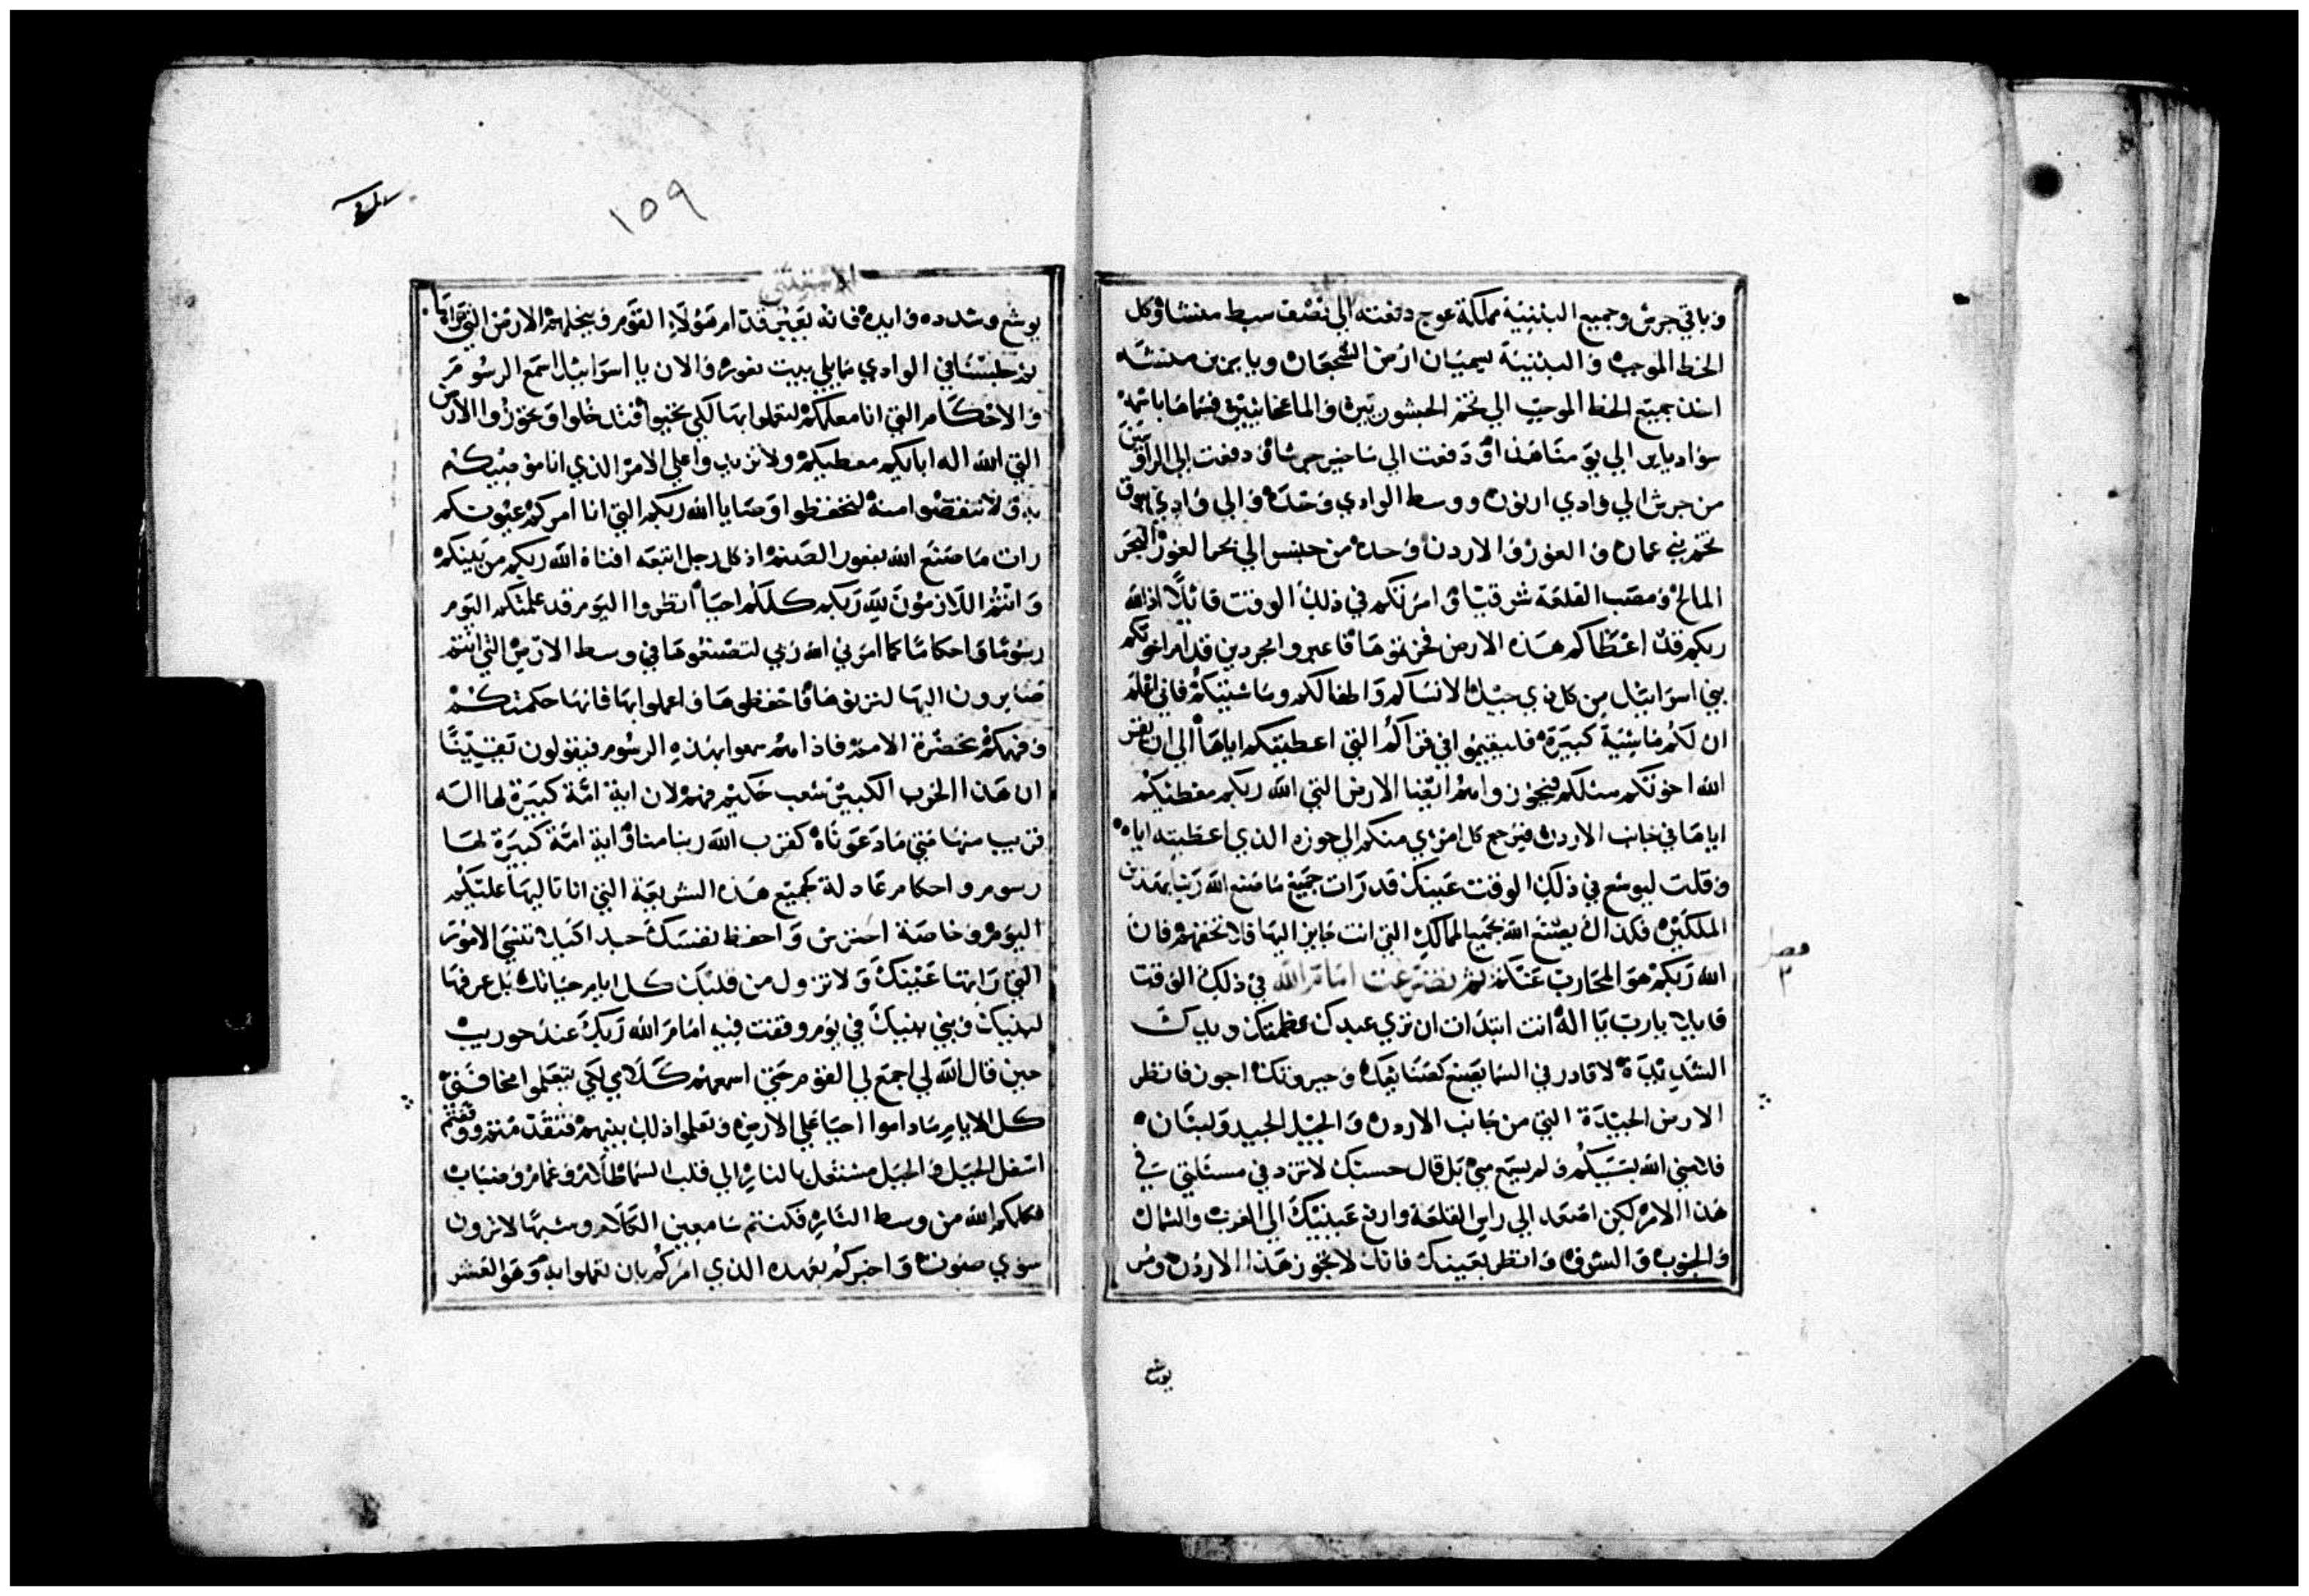 وباقي جرش وجميع البثنية مملكة عوج دفعته الي نصف سبط منشا وكل
الخط الموجب والبثنية يسميان ارض الشجعان ويايرين منشه
اخذ جميع الخط الموجب الي تخم الجشوريين والماعخاتيين فسماها باسمه
سواد ياير الي يومنا هذا ودفعت الي ماخير جرشا ودفعت الي الراوبين
من جرش الي وادي ارنون ووسط الوادي وحده والي وادي يبوق
تخم بني عمان والغور والاردن وحده من جنسر الي بحر الغور البحر
المالح ومصب القلعة شرقيا وامرتكم في ذلك الوقت قايلا اذ الله
ربكم قد اعطاكم هذه الارض فحوزوها فاعبروا مجردين قدام اخوتكم
بني اسراييل من كل ذي حيل الا نساكم واطفالكم وماشيتكم فاني اعلم
ان لكم ماشية كبيرة فليقيموا في قراكم التي اعطيتكم اياها الي ان يقر
الله اخوتكم مثلكم فيحوزوا هم ايضا الارض التي الله ربكم معطيكم
اياها في جانب الاردن فيرجع كل امري منكم الي حوزه الذي اعطيته اياه
وقلت ليوشع في ذلك الوقت عينك قد رات جميع ما صنع الله ربنا بهذين
الملكين فكذاك يصنع الله بجميع الممالك التي انت جايز اليها فلا تخفهم فان
الله ربكم هو المحارب عنكم ثم تضرعت امام الله في ذلك الوقت
قايلا يارب يا اله انت ابتدات ان تري عبدك عظمتك ويدك
الشديدة لا قادر في السما يصنع كصنايعك وجبروتك اجوز فانظر
الارض الجيدة التي من جانب الاردن والجبل الجيد ولبنان
فلامني الله بسببكم ولم يسمع مني بل قال حسبك لا تزد في مسالتي في
هذا الامر لكن اصعد الي راس القلعة وارفع عينيك الي الغرب والشمال
والجنوب والشرق وانظر بعينيك فانك لا تجوز هذا الاردن ومر
يوشع
فصل
٣
١٥٩
الاستثني
يوشع وشدده وايده فانه يعبر قدام هولاء القوم وينحلهم الارض التي تراها
ثم جلسنا في الوادي مايلي بيت فغور والان يا اسراييل اسمع الرسوم
والاحكام التي انا معلمكم لتعملوا بها لكي تحيوا فتدخلوا وتحوزوا الارض
التي الله اله ابايكم معطيكم ولا تزيدوا علي الامر الذي انا موصيكم
به ولا تنقصوا منه لتحفظوا وصايا الله ربكم التي انا امركم عيونكم
رات ما صنع الله بفعور الصنم اذ كل رجل اتبعه افناه الله ربكم من بينكم
وانتم اللازمون لله ربكم كلكم احيا انظروا اليوم قد علمتكم اليوم
رسوما واحكاما كما امرني الله ربي لتصنعوها في وسط الارض التي انتم
صايرون اليها لترثوها فاحفظوها واعملوا بها فانها حكمتكم
وفهمكم بحضرة الامم فاذا هم سمعوا بهذه الرسوم فيقولون تعيينا
ان هذا الحزب الكبير شعب حكيم فهم لان اية امة كبيرة لها اله
قريب منها متي ما دعوناه كقرب الله ربنا منا واية امة كبيرة لها
رسوم واحكام عادلة كجميع هذه الشريعة التي انا تاليها عليكم
اليوم وخاصة احترس واحفظ نفسك جيدا كيلا تنسي الامور
التي راتها عينيك ولا تزول من قلبك كل ايام حياتك بل عرفها
لبنيك وبني بنيك في يوم وقفت فيه امام الله ربك عند حوريب
حين قال الله لي اجمع لي القوم حتي اسمعهم كلامي لكي يتعلموا مخافتي
كل الايام ماداموا احيا علي الارض وتعلموا ذلك بنيهم فتقدمتم ووقفتم
اسفل الجبل والجبل مشتعل بالنار الي قلب السما ظلام وغمام وضباب
فكلمكم الله من وسط النار فكنتم سامعين الكلام وشبها لا ترون
سوي صوت واخبركم بعهده الذي امركم بان تعملوا به وهو العشر